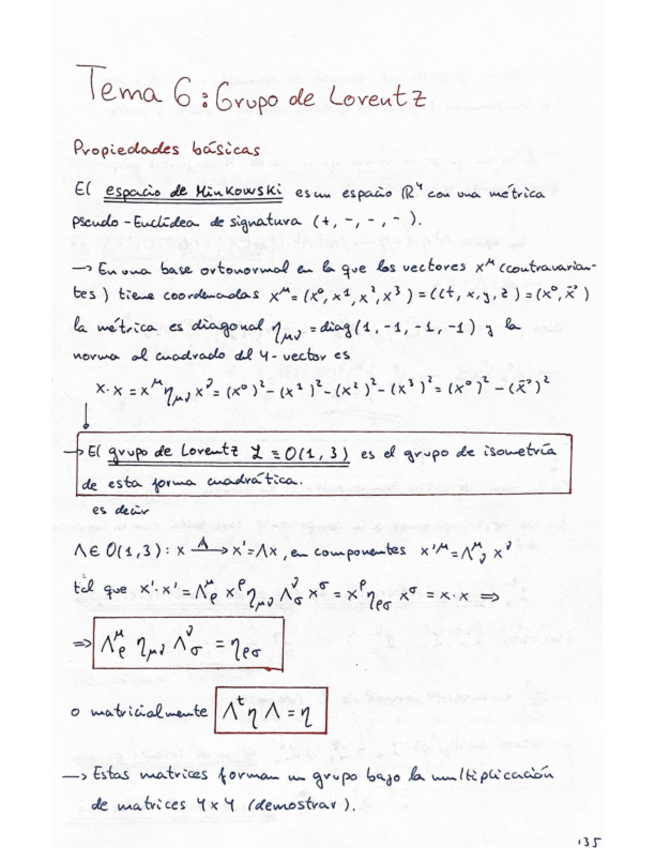 Tema 6: Grupo de Lorentz
Propiedades básicas
El espacio de Minkowski es un espacio ℝ⁴ con una métrica
pseudo-Euclídea de signatura (+, -, -, -).
→ En una base ortonormal en la que los vectores x^μ (contravarian-
tes) tiene coordenadas x^μ = (x⁰, x¹, x², x³) = (ct, x, y, z) = (x⁰, x⃗)
la métrica es diagonal η_μν = diag(1, -1, -1, -1) y la
norma al cuadrado del 4-vector es
x·x = x^μ η_μν x^ν = (x⁰)² - (x¹)² - (x²)² - (x³)² = (x⁰)² - (x⃗)²
→ El grupo de Lorentz ℒ ≡ O(1,3) es el grupo de isometría
de esta forma cuadrática.
es decir
Λ ∈ O(1,3): x →^Λ x' = Λx, en componentes x'^μ = Λ^μ_ν x^ν
tal que x'·x' = Λ^μ_ρ x^ρ η_μν Λ^ν_σ x^σ = x^ρ η_ρσ x^σ = x·x ⇒
⇒ Λ^μ_ρ η_μν Λ^ν_σ = η_ρσ
o matricialmente Λ^t η Λ = η
→ Estas matrices forman un grupo bajo la multiplicación
de matrices 4×4 (demostrar).
135